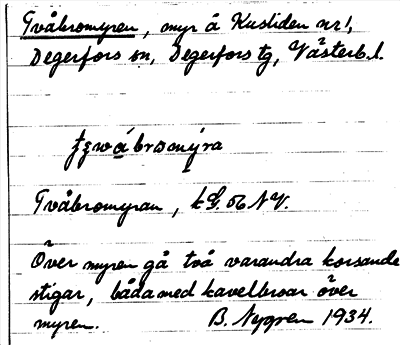 Tvåbromyren, myr å Kusliden nr 1,
Degerfors sn, Degerfors tg, Västerb. l.
Tvåbromyran,
Över myren gå två varandra korsande
stigar, båda med kavelbroar över
myren. B. Nygren 1934.